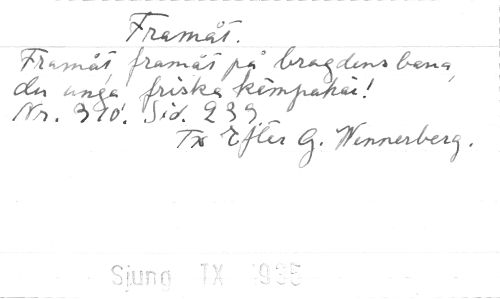 Framåt.
Framåt, framåt på bragdens bana,
du unga friska kämpahär!
Nr. 310. Sid. 239.
Tx Efter G. Wennerberg.
Sjung TX 1935